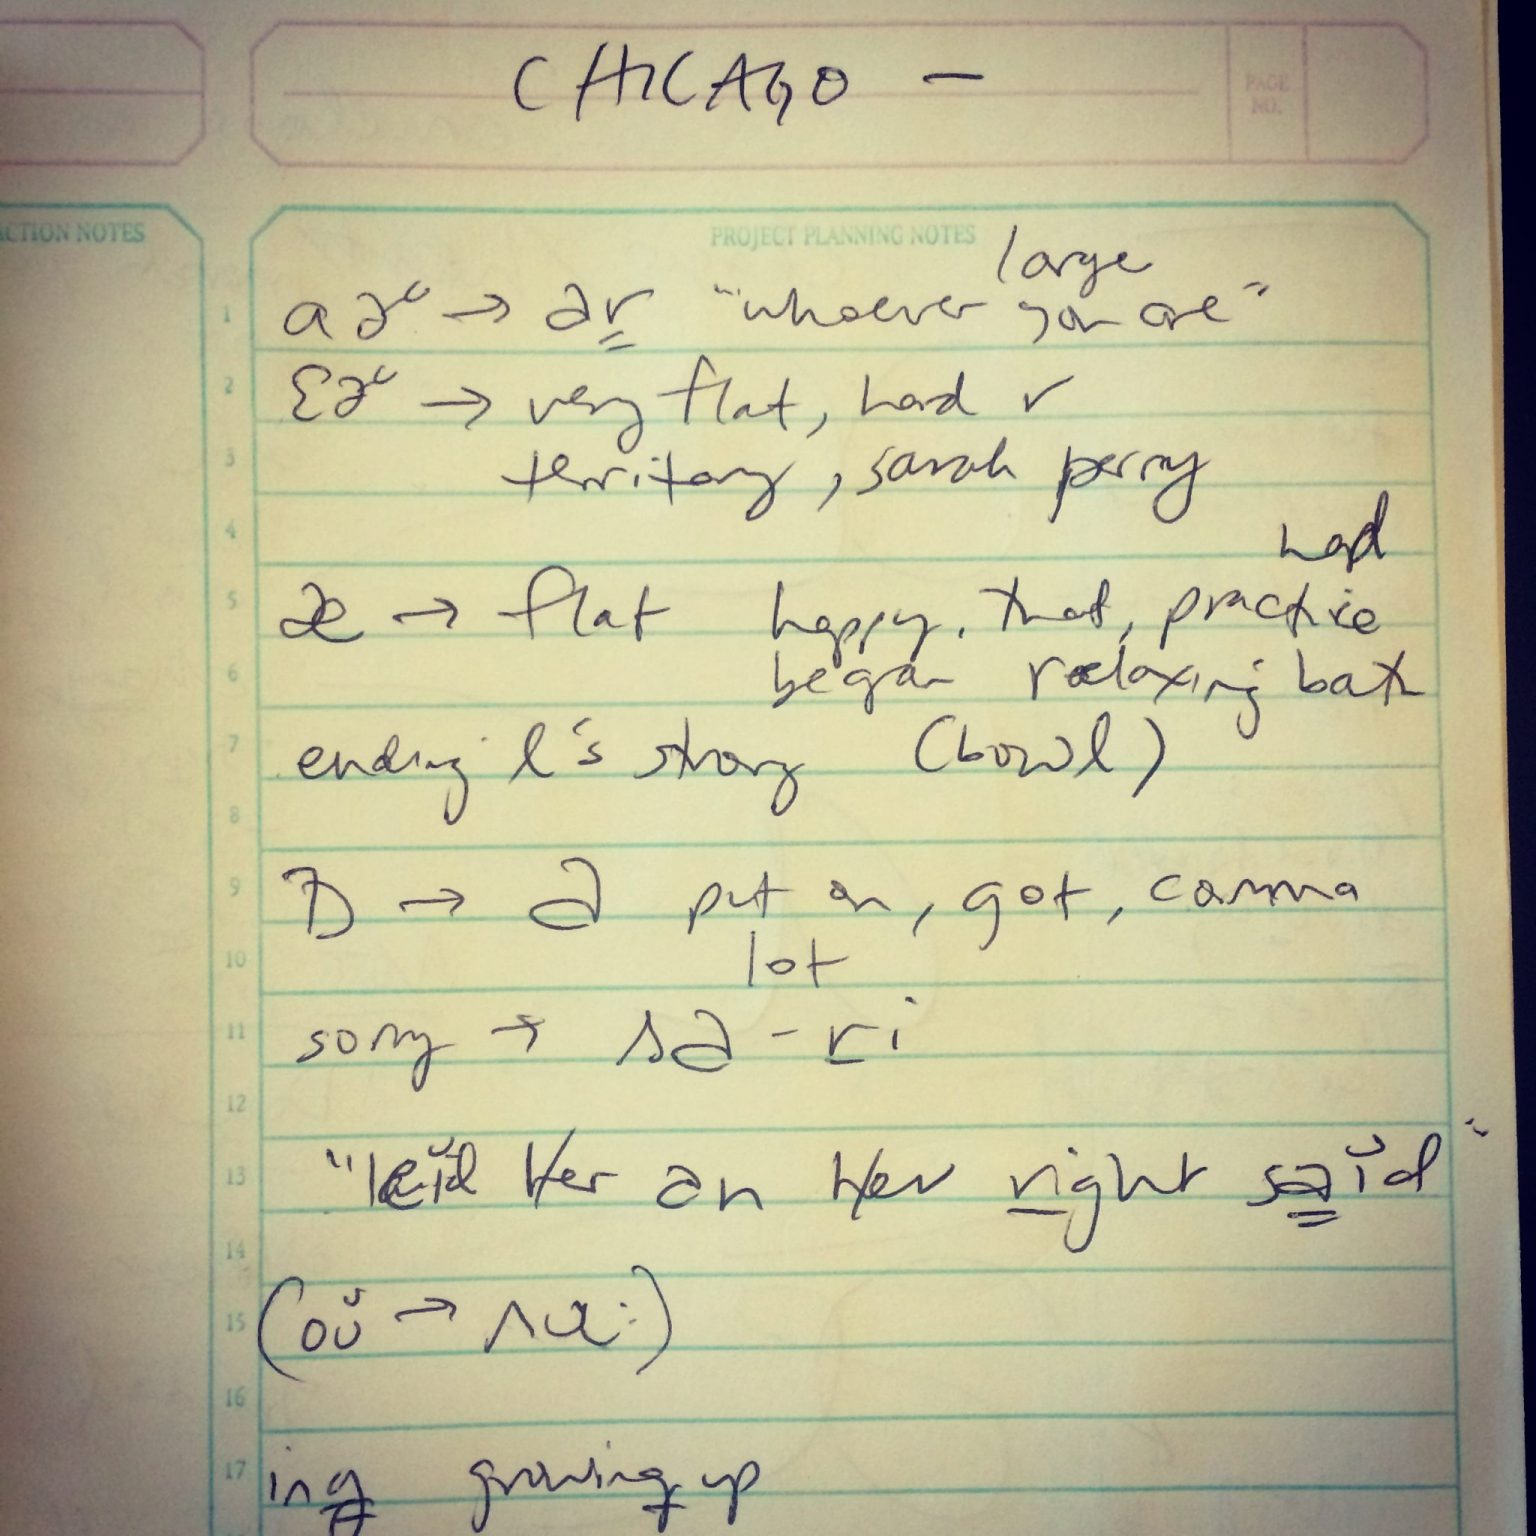 CHICAGO —
PAGE NO.
ACTION NOTES
PROJECT PLANNING NOTES
large
1 a ə˞ → ar "whoever you are"
2 ɛə˞ → very flat, hard r
3 territory, sarah perry
4 had
5 æ → flat happy, that, practice
6 began relaxing bath
7 ending l's strong (bowl)
8
9 ɒ → a put on, got, comma
10 lot
11 sorry → sa-ri
12
13 "leĭd her an her right saĭd"
14
15 (oŭ → ʌu:)
16
17 ing growing up